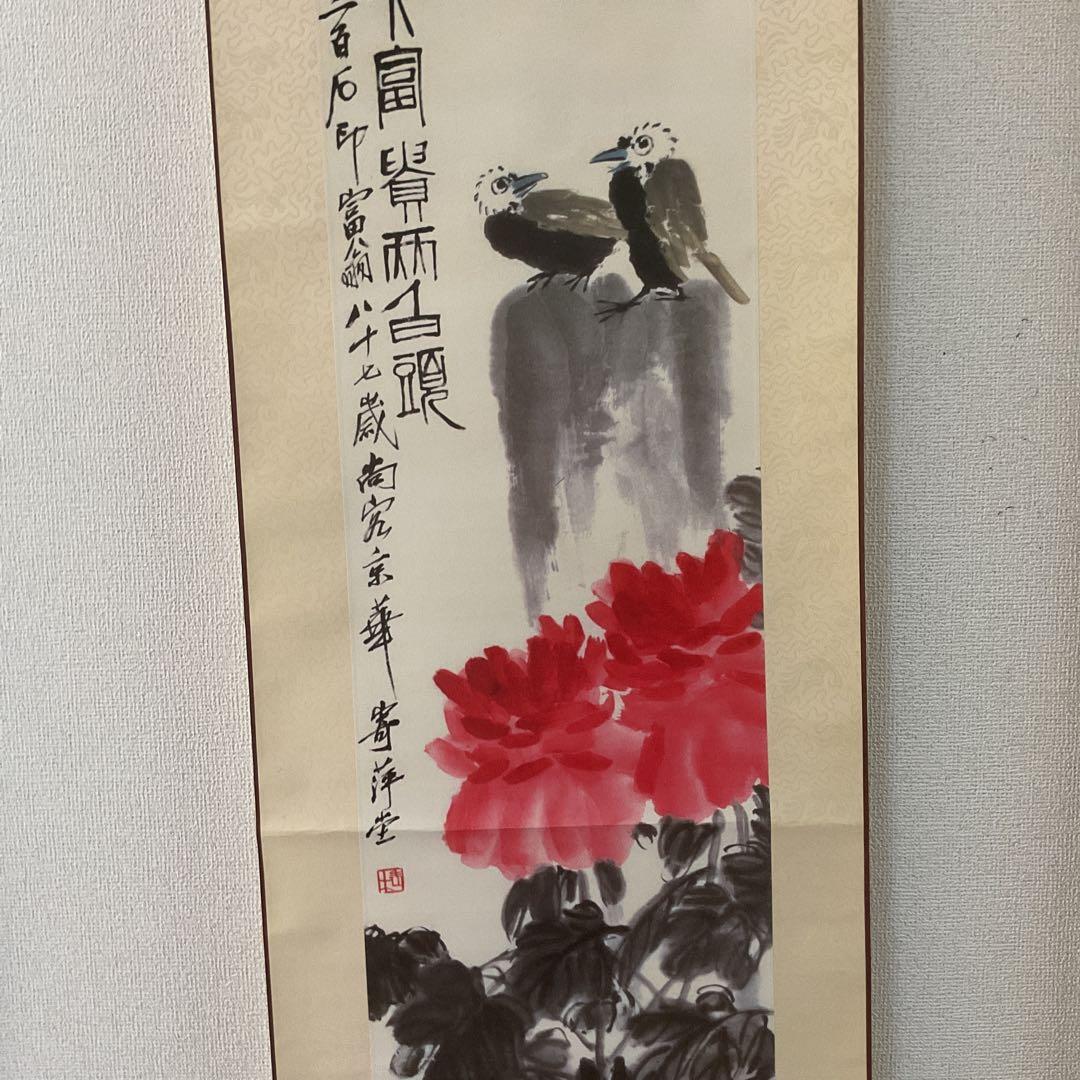 大富貴亦白頭
三百石印富翁八十七歲尚客京華寄萍堂